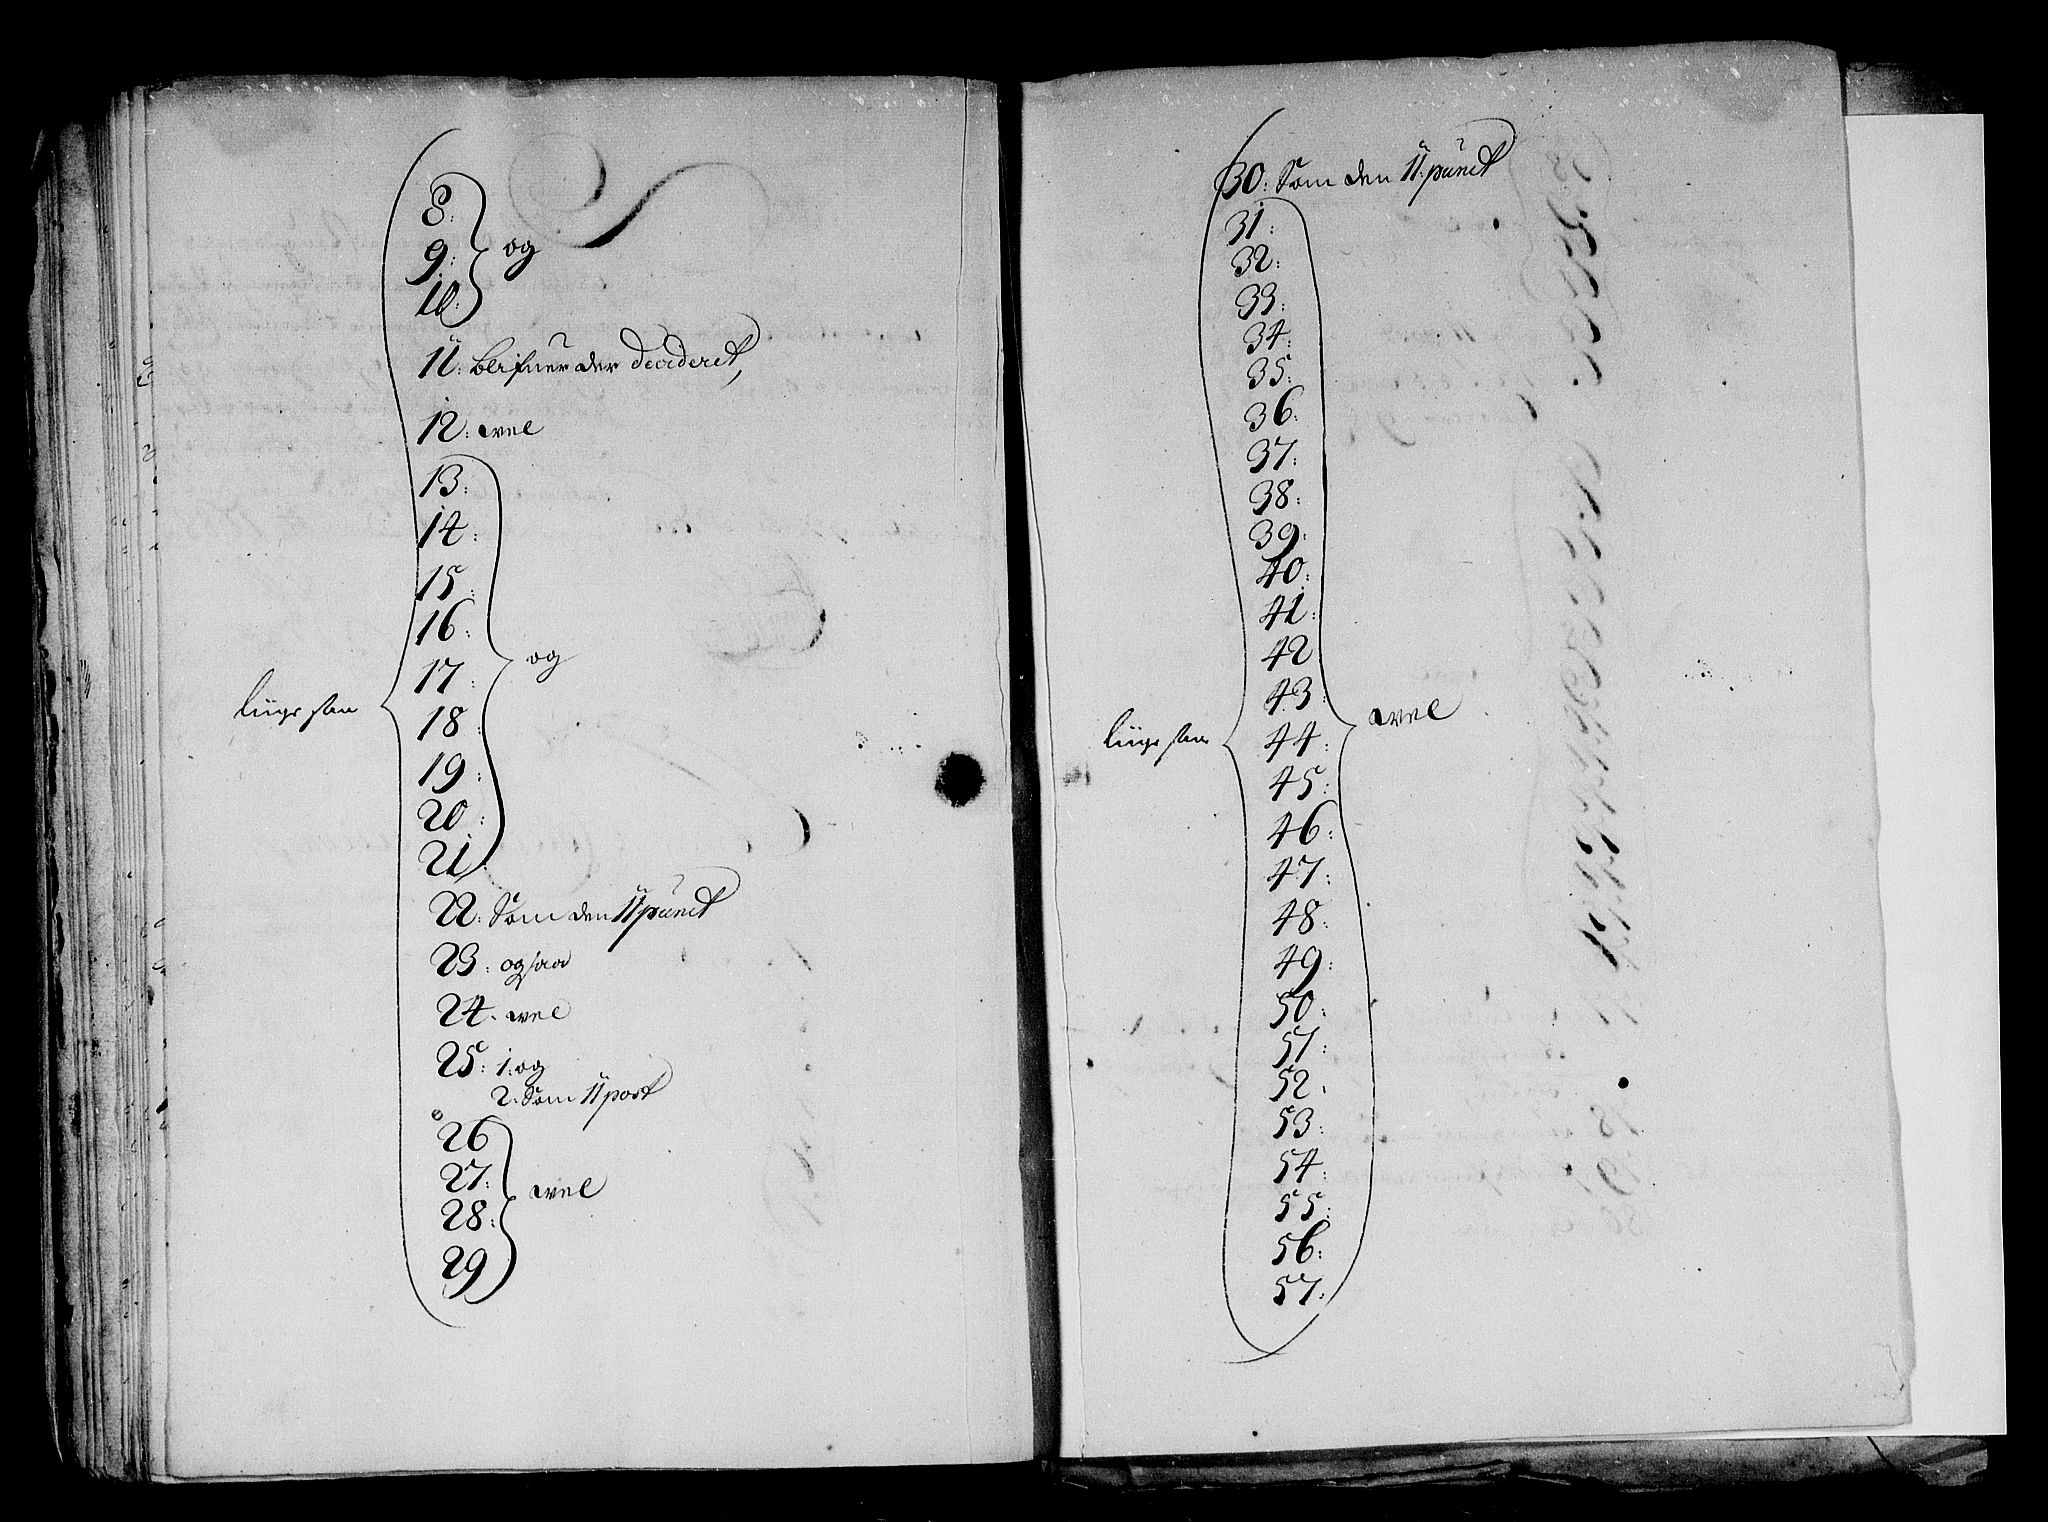 8:
9: og
10:
11: blifuer der decideret,
12: wel
13:
14:
15:
16:
17: og
18
liige saa
19:
20:
21:
22: Som den 11 punct
23: ogsaa
24. wel
25: 1: og
2: Som 11 post
26
27: wel
28:
29
30: Som den 11. punct
31:
32:
33:
34:
35:
36:
37:
38:
39:
40:
41:
42
43: wel
liige saa
44:
45:
46:
47:
48:
49:
50:
51:
52.
53:
54:
55:
56:
57: